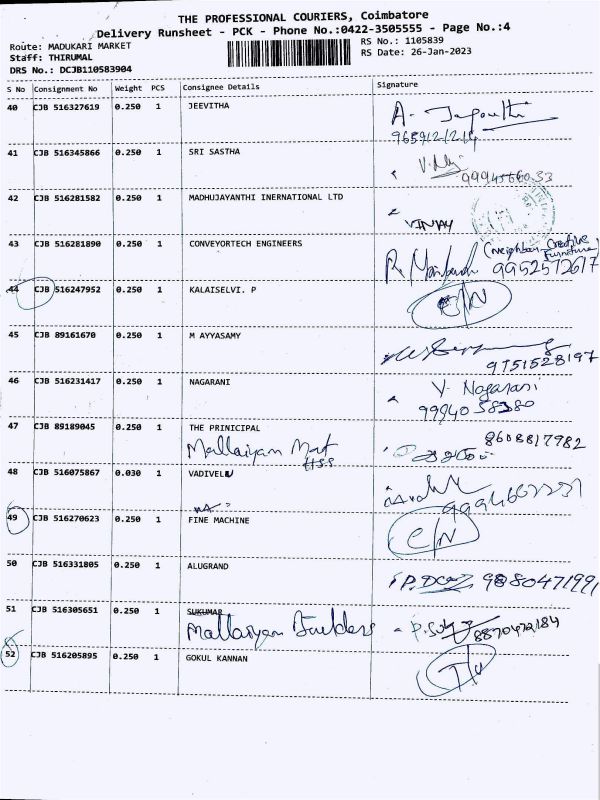 THE PROFESSIONAL COURIERS, Coimbatore
Delivery Runsheet - PCK - Phone No.:0422-3505555 - Page No.:4
Route: MADUKARI MARKET
RS No.: 1105839
Staff: THIRUMAL
RS Date: 26-Jan-2023
DRS No.: DCJB110583904
S No Consignment No Weight PCS Consignee Details Signature
40 CJB 516327619 0.250 1 JEEVITHA A-
41 CJB 516345866 0.250 1 SRI SASTHA
42 CJB 516281582 0.250 1 MADHUJAYANTHI INERNATIONAL LTD VINJAY
43 CJB 516281890 0.250 1 CONVEYORTECH ENGINEERS (Neighbour Creative Furniture)
9952572617
44 CJB 516247952 0.250 1 KALAISELVI. P C/N
45 CJB 89161670 0.250 1 M AYYASAMY
9751528197
46 CJB 516231417 0.250 1 NAGARANI V. Nagarani
99940 58380
47 CJB 89189045 0.250 1 THE PRINICIPAL 8608817982
Mallaiyan Mat HSS
48 CJB 516075867 0.030 1 VADIVELU
49 CJB 516270623 0.250 1 FINE MACHINE C/N
50 CJB 516331805 0.250 1 ALUGRAND 9880471991
51 CJB 516305651 0.250 1 SUKUMAR
Mallaiyan Builders 8870472184
52 CJB 516205895 0.250 1 GOKUL KANNAN